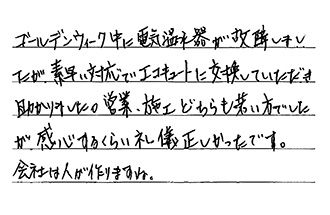 ゴールデンウィーク中に電気温水器が故障しまし
たが、素早い対応でエコキュートに交換していただき
助かりました。営業、施工どちらも若い方でした
が感心するくらい礼儀正しかったです。
会社は人が作りますね。